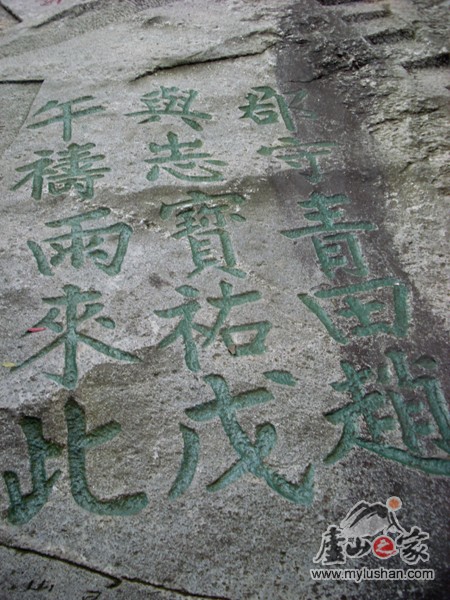 郡守青田趙
與志寶祐戊
午禱雨來此
廬山之家
www.mylushan.com